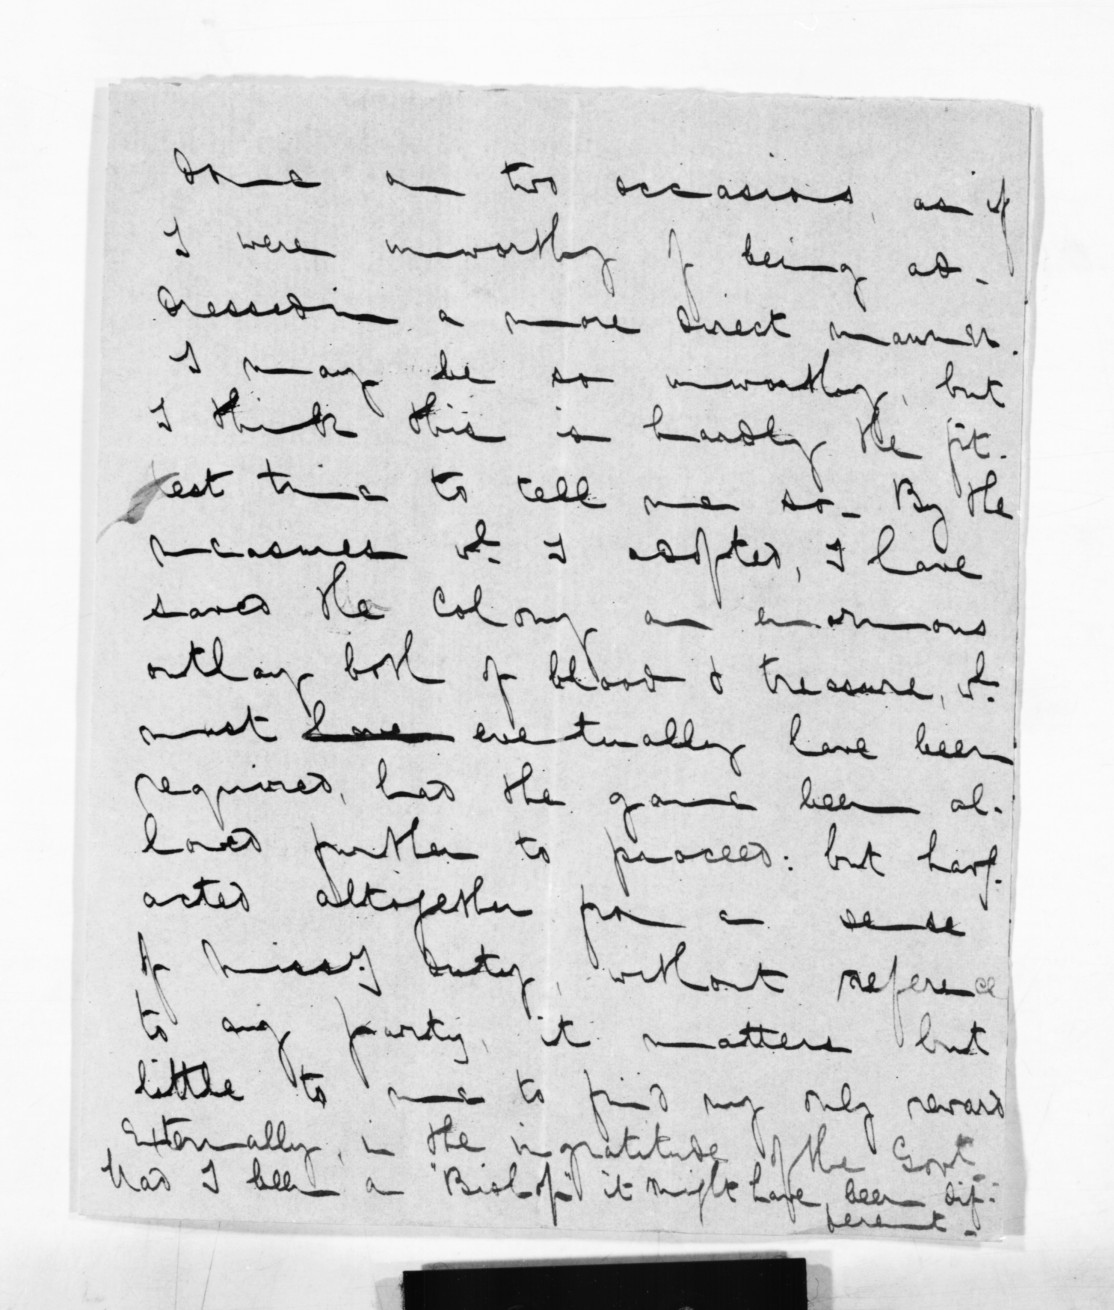 done on two occasions, as if
I were unworthy of being ad-
dressed in a more direct manner.
I may be so unworthy, but
I think this is hardly the fit-
test time to tell me so - By the
measures wh. I adopted, I have
saved the Colony an enormous
outlay both of blood & treasure, wh.
must have eventually have been
required, had the game been al-
lowed further to proceed: but havg.
acted altogether from a sense
of Missy duty, without reference
to any party, it matters but
little to me to find my only reward
Externally, in the ingratitude of the Govt.
Had I been a "Bishop" it might have been dif-
ferent -